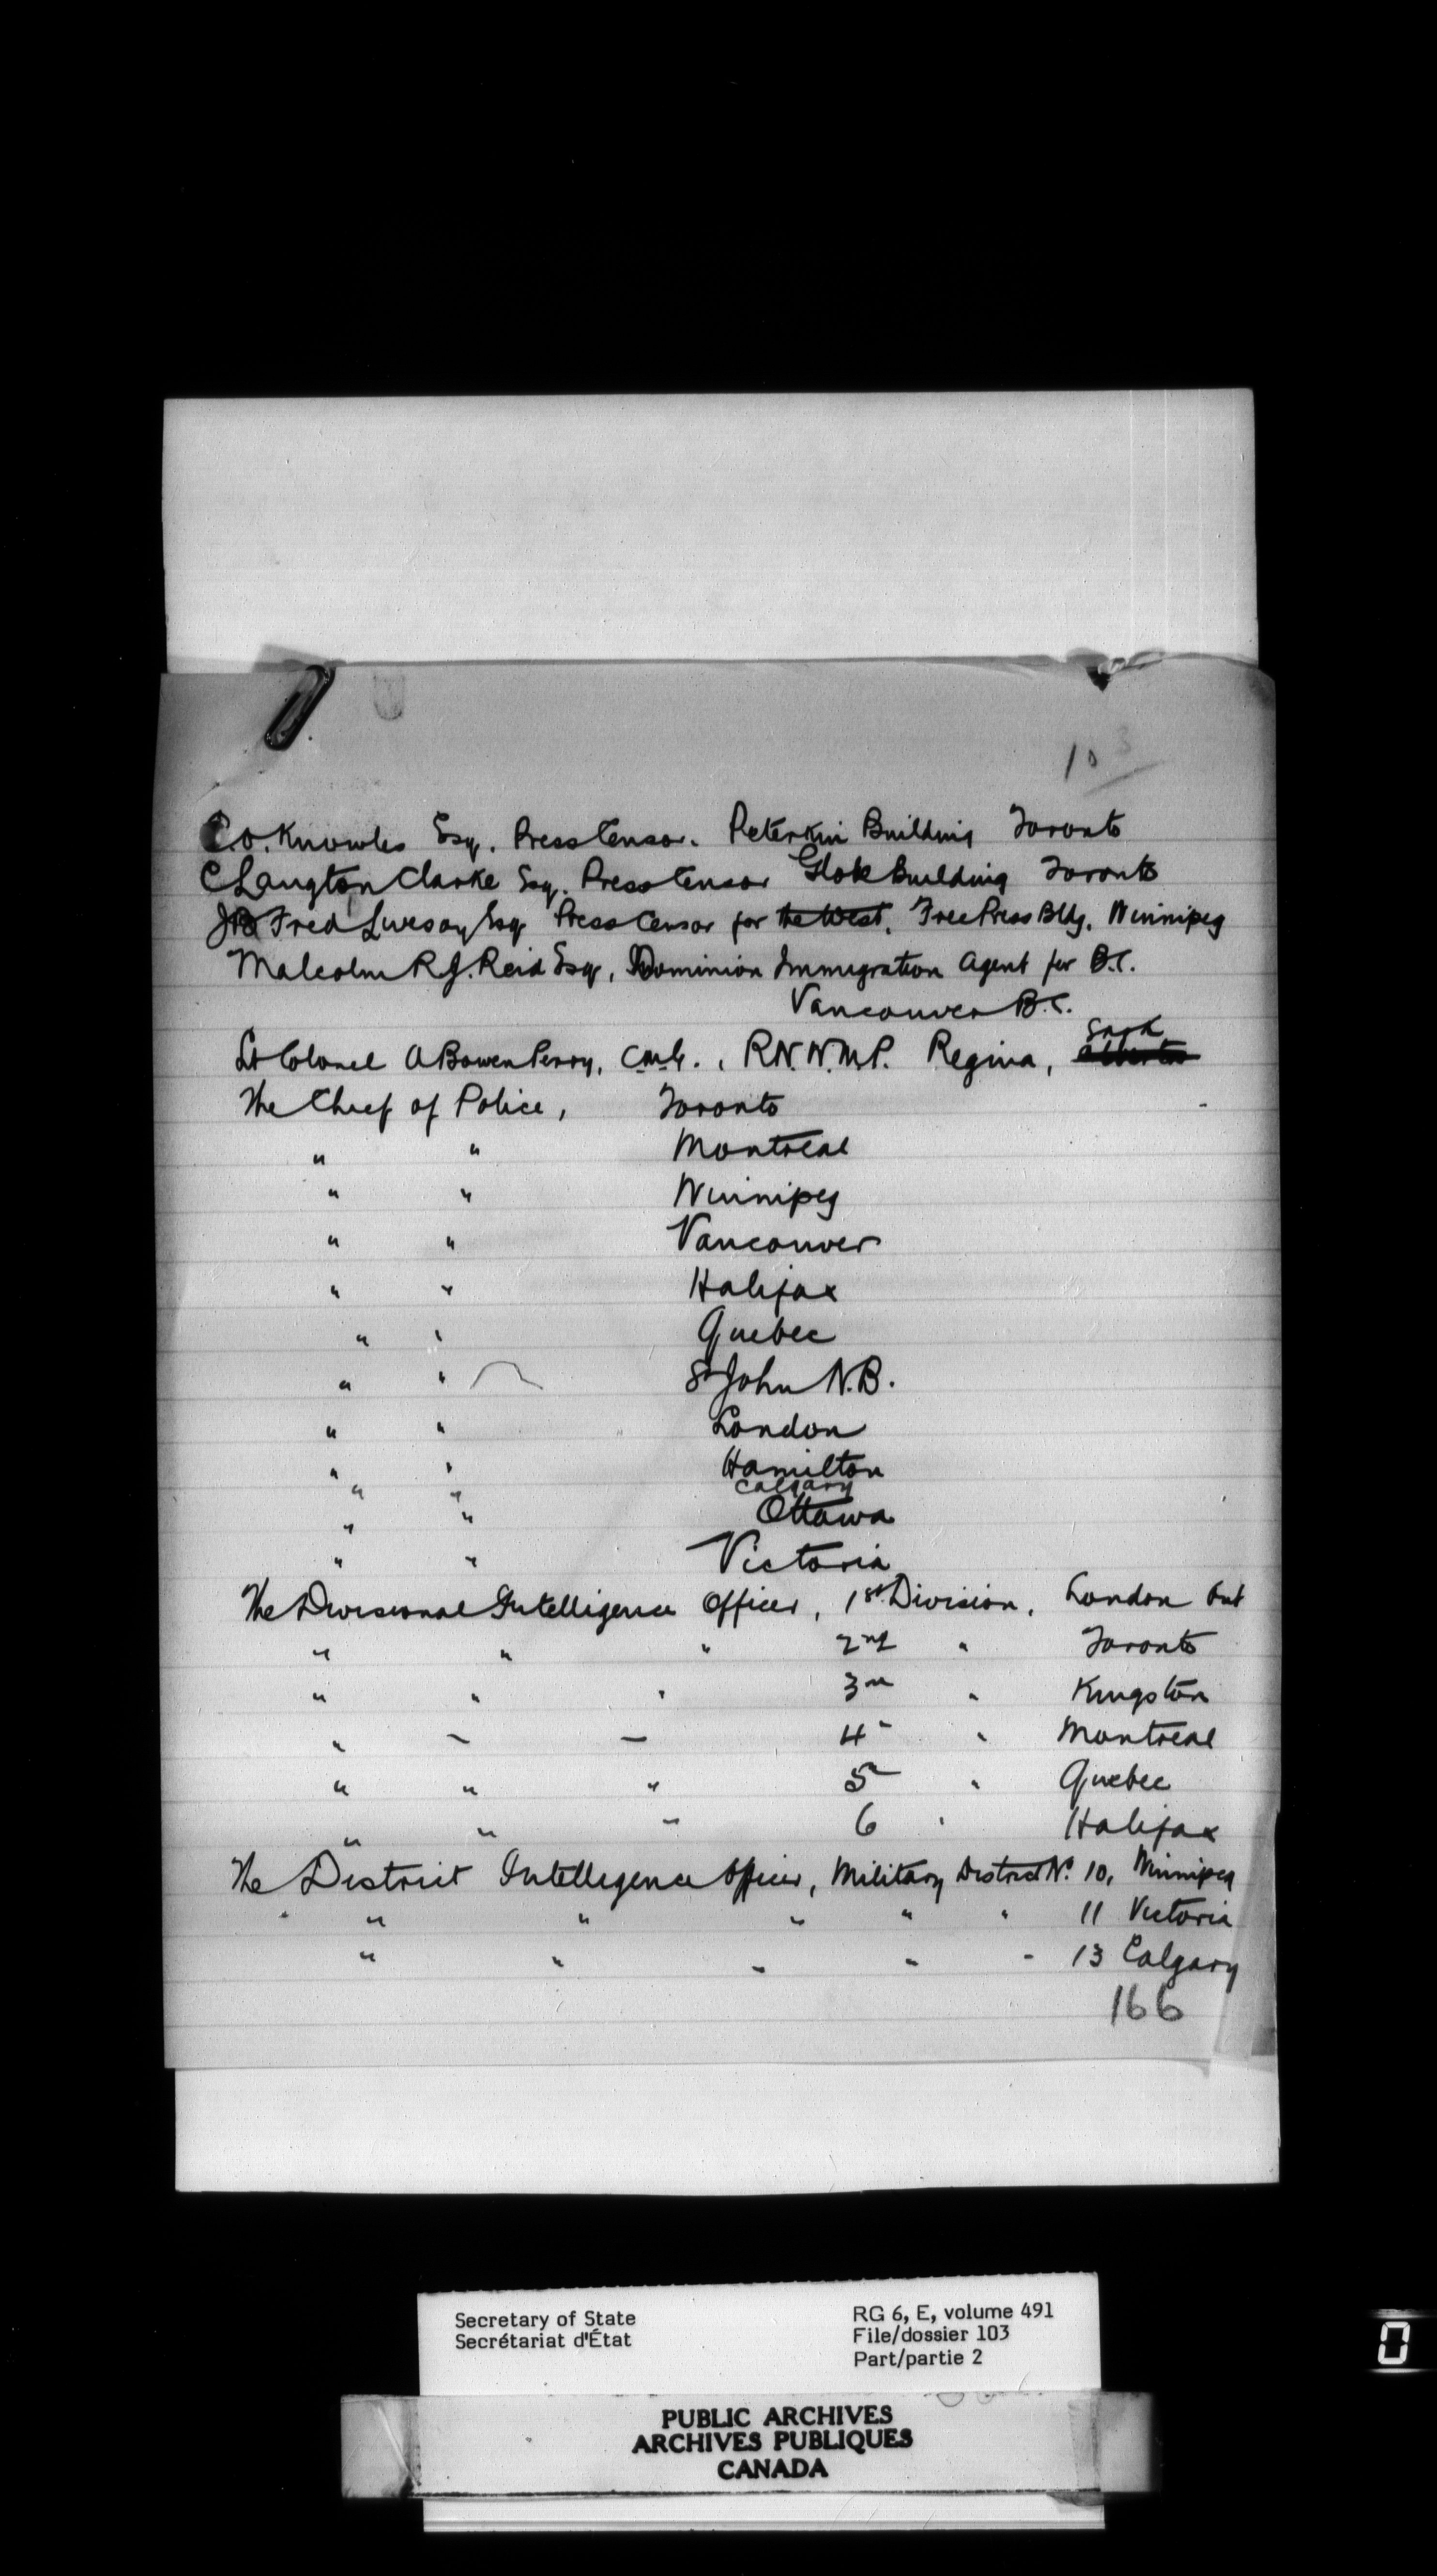 103
C.O. Knowles Esq. Press Censor. Peterkin Building Toronto
C Langton Clarke Esq. Press Censor Globe Building Toronto
Fred Livesay Esq Press Censor for the West, Free Press Bldg, Winnipeg
Malcolm R.J. Reid Esq, Dominion Immigration Agent for B.C.
Vancouver B.C.
Sask
Lt Colonel A Bowen Perry, C.M.G., R.N.W.M.P. Regina, Alberta
The Chief of Police, Toronto
" " Montreal
" " Winnipeg
" " Vancouver
" " Halifax
" " Quebec
" " St John N.B.
" " London
" " Hamilton
" " Calgary
" " Ottawa
" " Victoria
The Divisional Intelligence Officer, 1st Division, London Ont
" " " 2nd " Toronto
" " " 3rd " Kingston
" " " 4 " Montreal
" " " 5 " Quebec
" " " 6 " Halifax
The District Intelligence Officer, Military District No. 10, Winnipeg
" " " " " 11 Victoria
" " " " " 13 Calgary
166
Secretary of State
Secrétariat d'État
RG 6, E, volume 491
File/dossier 103
Part/partie 2
PUBLIC ARCHIVES
ARCHIVES PUBLIQUES
CANADA
0